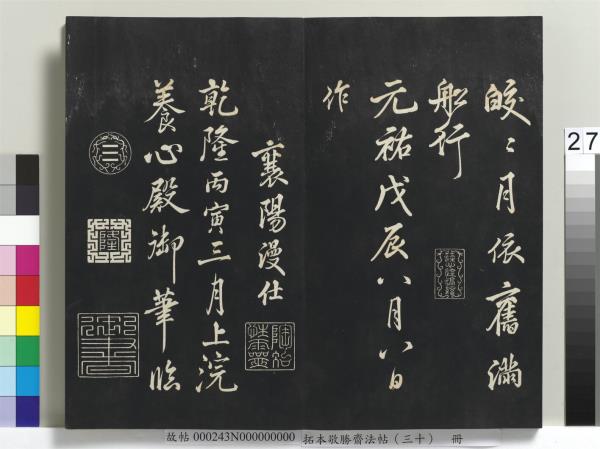 皎〻月依舊滿
船行
元祐戊辰八月八日
作
襄陽漫仕
乾隆丙寅三月上浣
養心殿御筆臨
三
隆
陶冶
性靈
御
書
27
故帖 000243N000000000
拓本敬勝齋法帖（三十） 冊